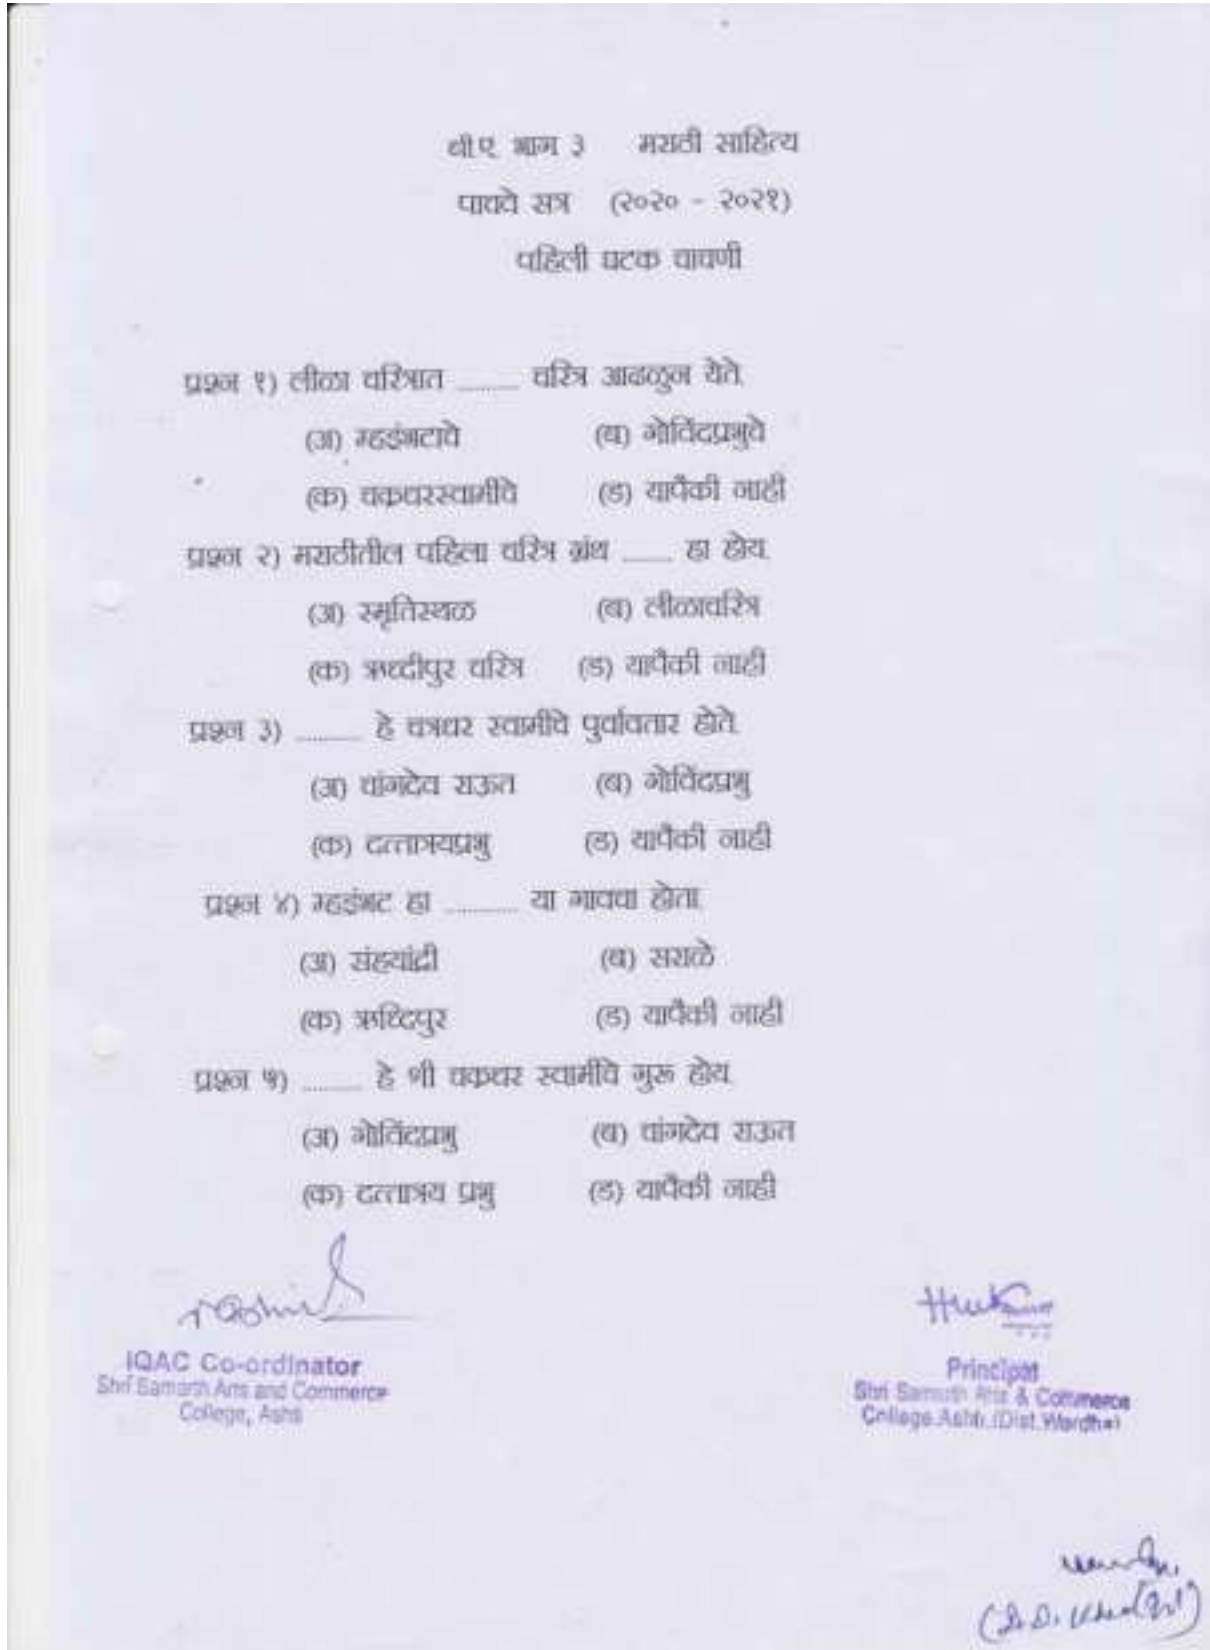 बी.ए. भाग ३ मराठी साहित्य
पाचवे सत्र (२०२० - २०२१)
पहिली घटक चाचणी
प्रश्न १) लीळा चरित्रात ........ चरित्र आढळुन येते.
(अ) म्हइंभटाचे (ब) गोविंदप्रभुचे
(क) चक्रधरस्वामींचे (ड) यापैकी नाही
प्रश्न २) मराठीतील पहिला चरित्र ग्रंथ ....... हा होय.
(अ) स्मृतिस्थळ (ब) लीळाचरित्र
(क) ऋध्दीपुर चरित्र (ड) यापैकी नाही
प्रश्न ३) ......... हे चक्रधर स्वामींचे पुर्वावतार होते.
(अ) चांगदेव राऊत (ब) गोविंदप्रभु
(क) दत्तात्रयप्रभु (ड) यापैकी नाही
प्रश्न ४) म्हइंभट हा .......... या गावचा होता.
(अ) संहयांद्री (ब) सराळे
(क) ऋध्दिपुर (ड) यापैकी नाही
प्रश्न ५) ........ हे श्री चक्रधर स्वामींचे गुरू होय.
(अ) गोविंदप्रभु (ब) चांगदेव राऊत
(क) दत्तात्रय प्रभु (ड) यापैकी नाही
IQAC Co-ordinator
Shri Samarth Arts and Commerce
College, Ashti
Principal
Shri Samarth Arts & Commerce
College Ashti (Dist. Wardha)